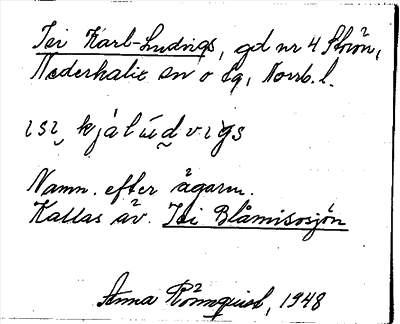 Isi Karl-Ludvigs, gd nr 4 Strön,
Nederkalix sn o sg, Norrb. l.
ɪsi kjálúdvigs
Namn. efter ägarn.
Kallas äv. Isi Blåmisosjön
Anna Rönnquist, 1948